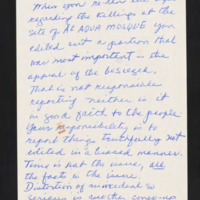 When you re-ran the
regarding the killings at the
site of AL AQUA MOSQUE you
edited out a portion that
was most important - the
appeal of the besieged.
That is not responsible
reporting neither is it
in good faith to the people
Your responsibility is to
report things truthfully not
edited in a biased manner.
Time is not the issue, all
the facts is the issue.
Distortion of
serious is another cover-up